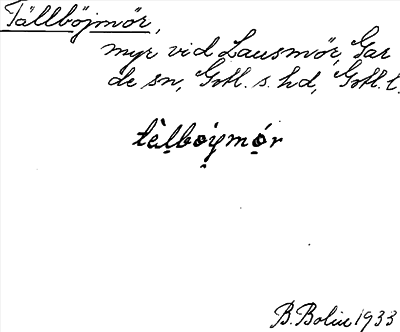 Tällböjmör,
myr vid Lausmör, Gar
de sn, Gotl. s. hd, Gotl. l.
tèlbọymọ́r
B. Bolin 1933